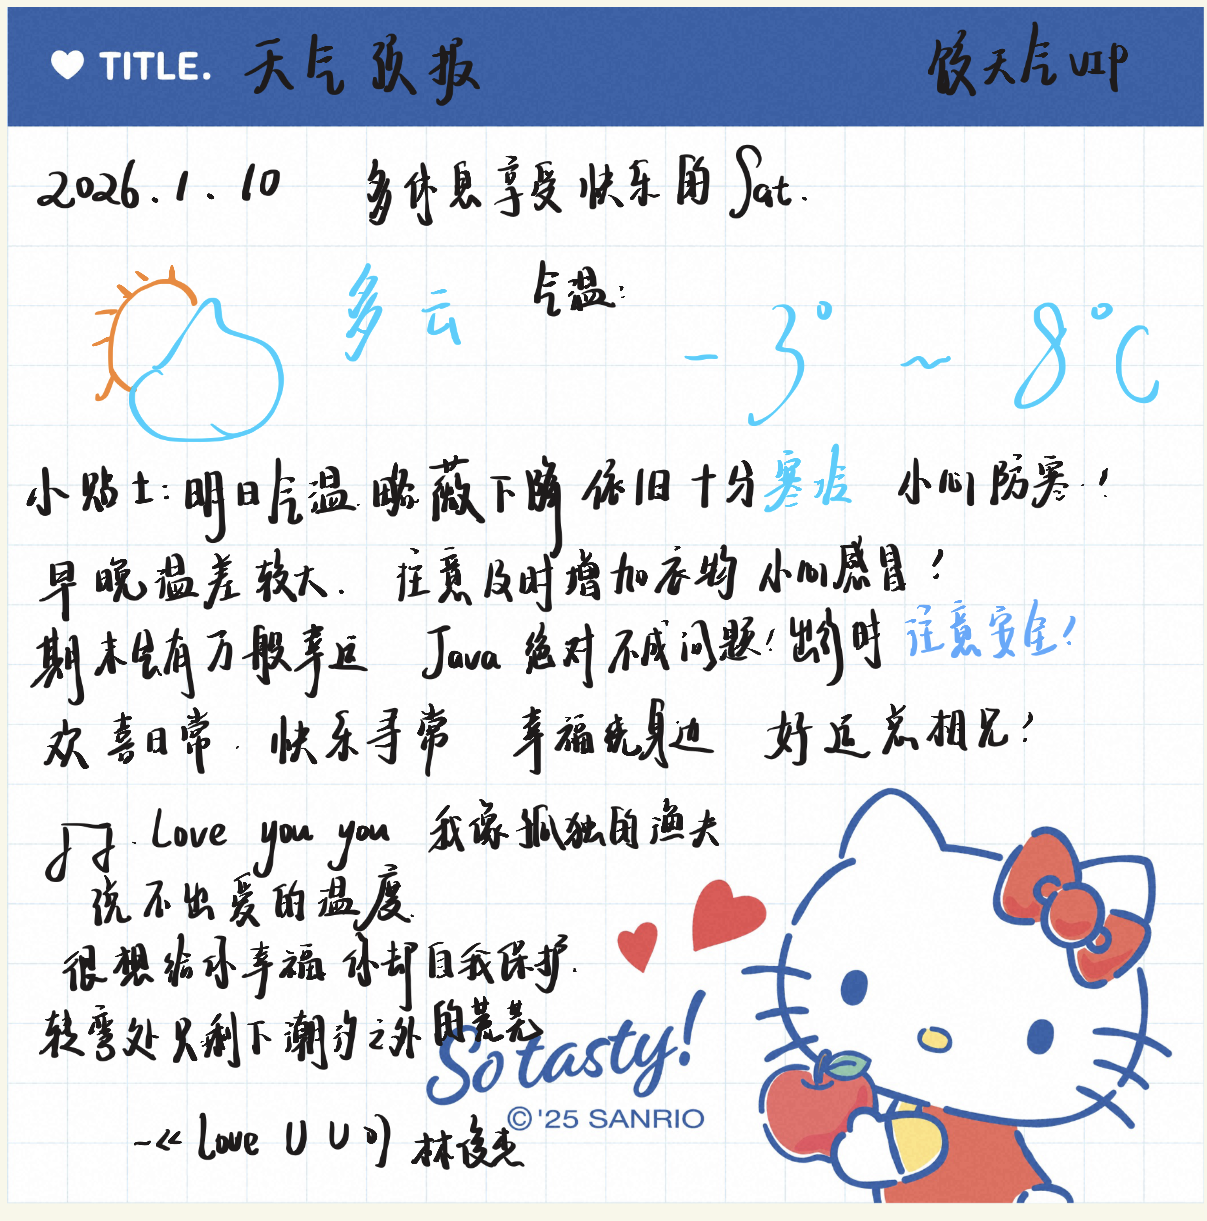 TITLE. 天气预报 饺天气VIP
2026.1.10 多休息享受快乐的Sat.
多云 气温: -3°~8°C
小贴士:明日气温略薇下降 依旧十分寒冷 小心防寒!
早晚温差较大. 注意及时增加衣物 小心感冒!
期末生有万般幸运 Java绝对不成问题!出行时注意安全!
欢喜日常 快乐寻常 幸福绕身边 好运总相见!
Love you you 我像孤独的渔夫
说不出爱的温度.
很想给你幸福 你却自我保护.
转弯处只剩下潮汐之外的荒芜
So tasty!
©'25 SANRIO
~《Love U U》林俊杰